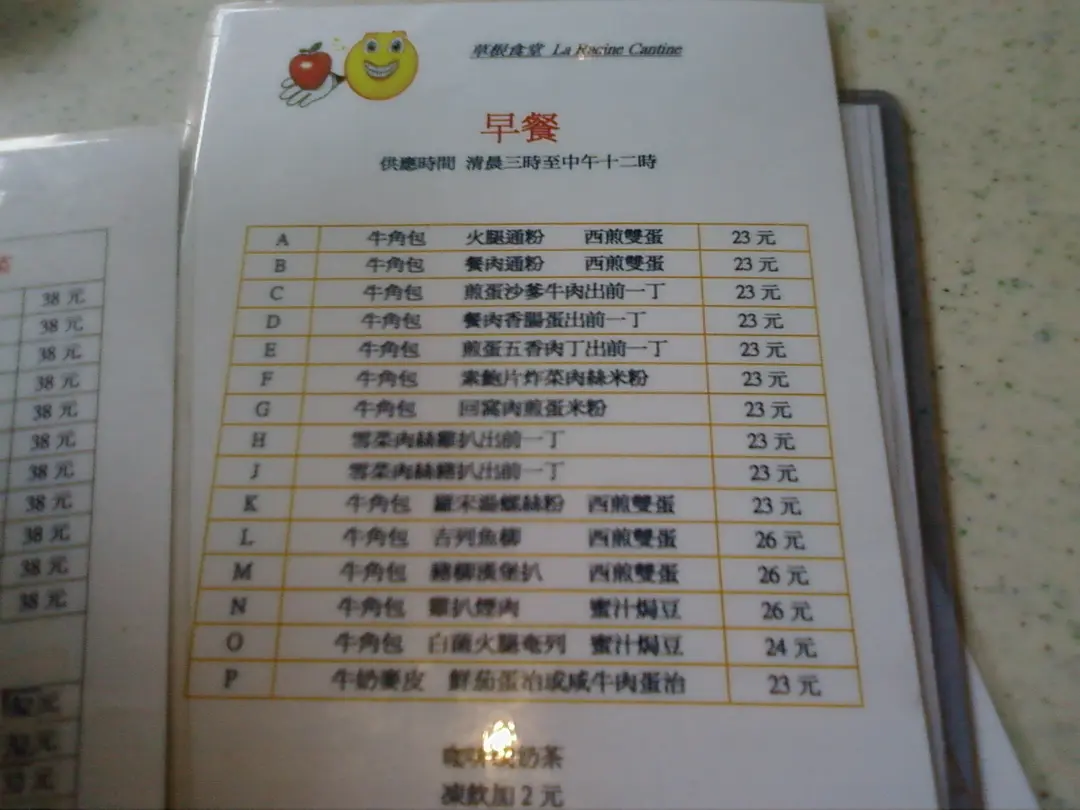 草根食堂 La Racine Cantine
早餐
供應時間 清晨三時至中午十二時
A 牛角包 火腿通粉 西煎雙蛋 23 元
B 牛角包 餐肉通粉 西煎雙蛋 23 元
C 牛角包 煎蛋沙爹牛肉出前一丁 23 元
D 牛角包 餐肉香腸蛋出前一丁 23 元
E 牛角包 煎蛋五香肉丁出前一丁 23 元
F 牛角包 素鮑片炸菜肉絲米粉 23 元
G 牛角包 回窩肉煎蛋米粉 23 元
H 雪菜肉絲雞扒出前一丁 23 元
J 雪菜肉絲豬扒出前一丁 23 元
K 牛角包 羅宋湯螺絲粉 西煎雙蛋 23 元
L 牛角包 吉列魚柳 西煎雙蛋 26 元
M 牛角包 豬柳漢堡扒 西煎雙蛋 26 元
N 牛角包 雞扒煙肉 蜜汁焗豆 26 元
O 牛角包 白菌火腿奄列 蜜汁焗豆 24 元
P 牛奶麥皮 鮮茄蛋治或咸牛肉蛋治 23 元
咖啡或奶茶
凍飲加 2 元
38 元
38 元
38 元
38 元
38 元
38 元
38 元
38 元
38 元
38 元
38 元
元
元
元